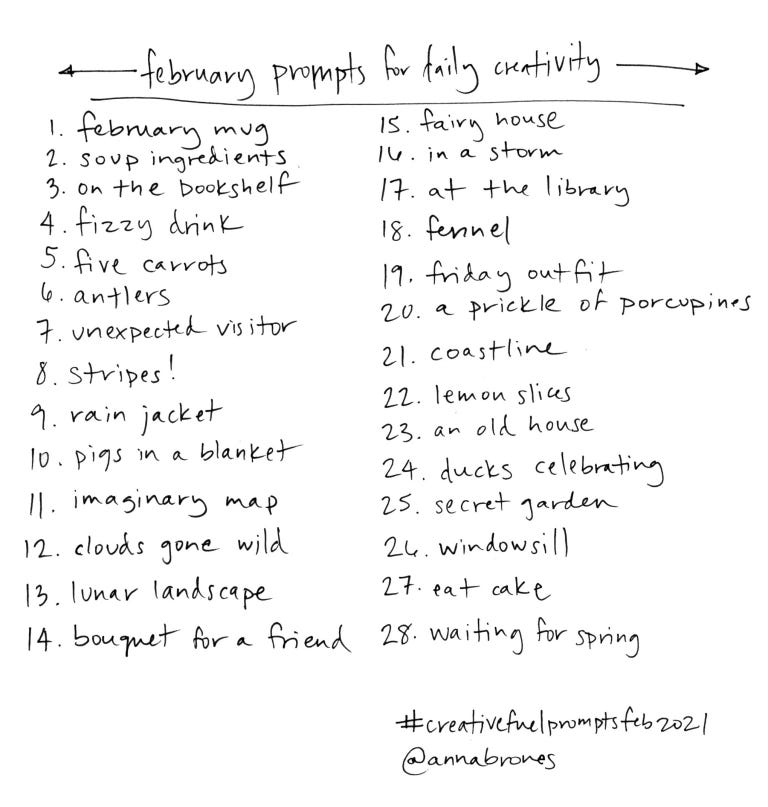 february prompts for daily creativity
1. february mug
2. soup ingredients
3. on the bookshelf
4. fizzy drink
5. five carrots
6. antlers
7. unexpected visitor
8. stripes!
9. rain jacket
10. pigs in a blanket
11. imaginary map
12. clouds gone wild
13. lunar landscape
14. bouquet for a friend
15. fairy house
16. in a storm
17. at the library
18. fennel
19. friday outfit
20. a prickle of porcupines
21. coastline
22. lemon slices
23. an old house
24. ducks celebrating
25. secret garden
26. windowsill
27. eat cake
28. waiting for spring
#creativefuelpromptsfeb2021
@annabrones